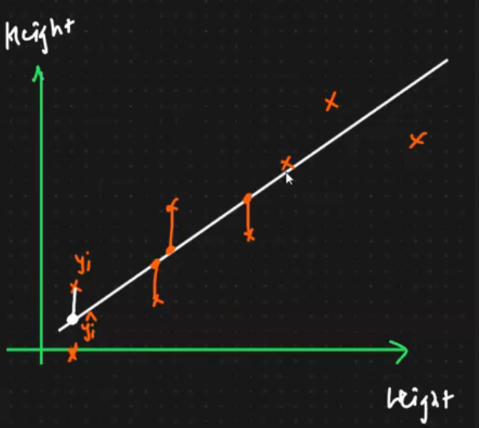 Height
yi
ŷi
Weight